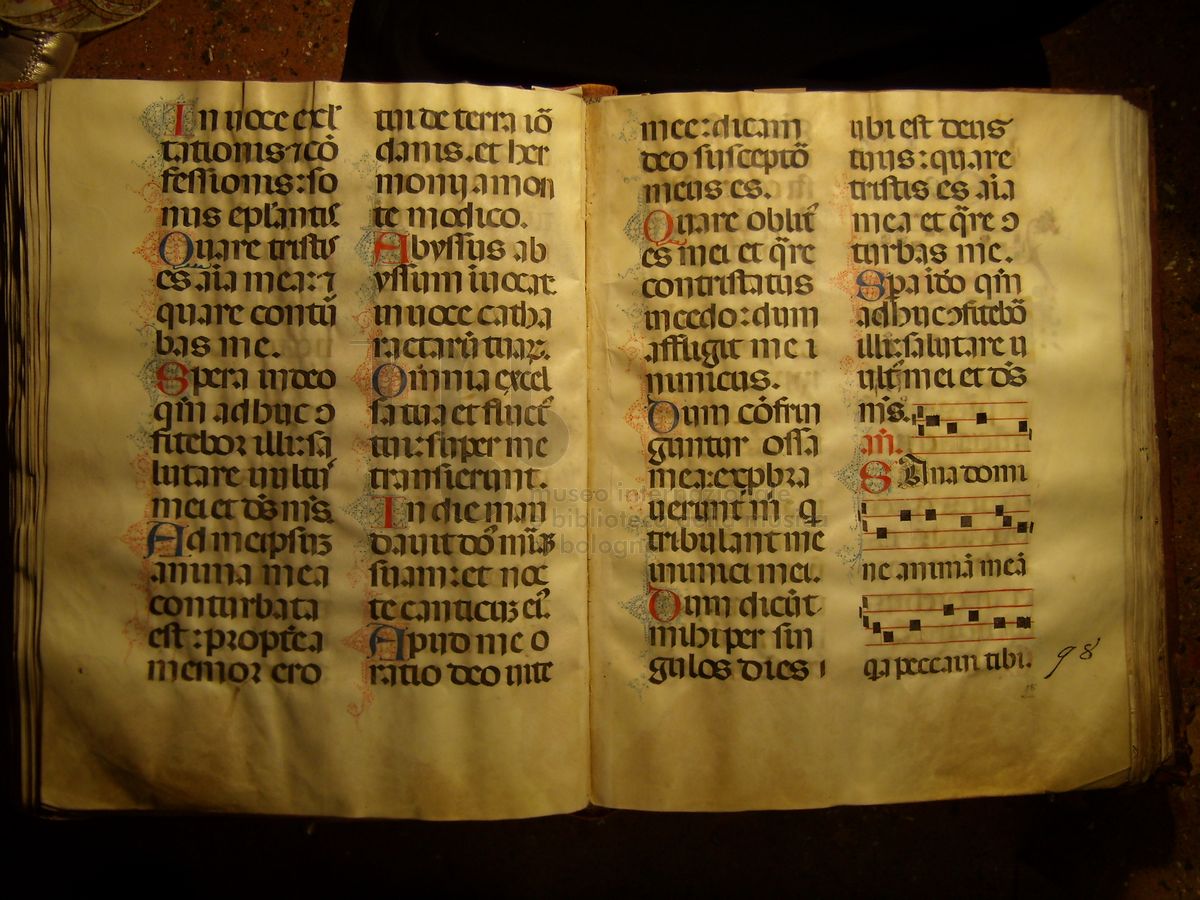 In uoce exl
tationis ⁊ cō
fessionis: so
nus epulantis
Quare tristis
es aīa mea: ⁊
quare contū
bas me.
Spera in deo
qm̄ adhuc ↄ
fitebor illi: sa
lutare uultus
mei et ds̄ ms̄.
Ad meipsuꝫ
anima mea
conturbata
est: propt̄ea
memor ero
tui de terra iō
danis. et her
monij a mon
te modico.
Abyssus ab
yssum inuocat.
in uoce catha
ractarū tuaꝝ.
Omnia excel
sa tua et fluct᷒
tui: super me
transierunt.
In die man
dauit dō mīaꝫ
suam: et noc
te canticuꝫ eī.
Apud me o
ratio deo uite
mee: dicam
deo susceptō
meus es.
Quare oblit᷒
es mei et qr̄e
contristatus
incedo: dum
affligit me i
nimicus.
Dum cōfrin
guntur ossa
mea: exp̱bra
uerunt m̄ q
tribulant me
inimici mei.
Dum dicūt
mihi per sin
gulos dies i
ubi est deus
tuus: quare
tristis es aīa
mea et qr̄e ↄ
turbas me.
Spa i dō qm̄
adhuc ↄfitebō
illi: salutare u
ult᷒ mei et ds̄
ms̄.
añ.
Sana domi
ne animā meā
q̇a peccaui tibi. 98
museo internazionale
biblioteca della musica
bologna